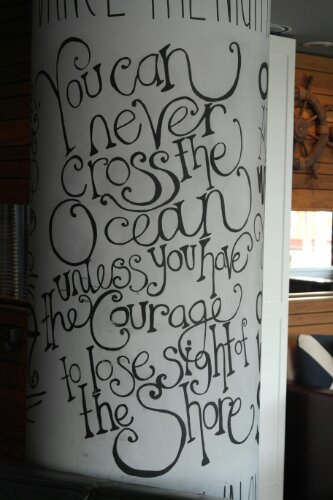 DANCE THE NIGHT
You can
never
cross the
Ocean
unless you have
the Courage
to lose sight of
the Shore